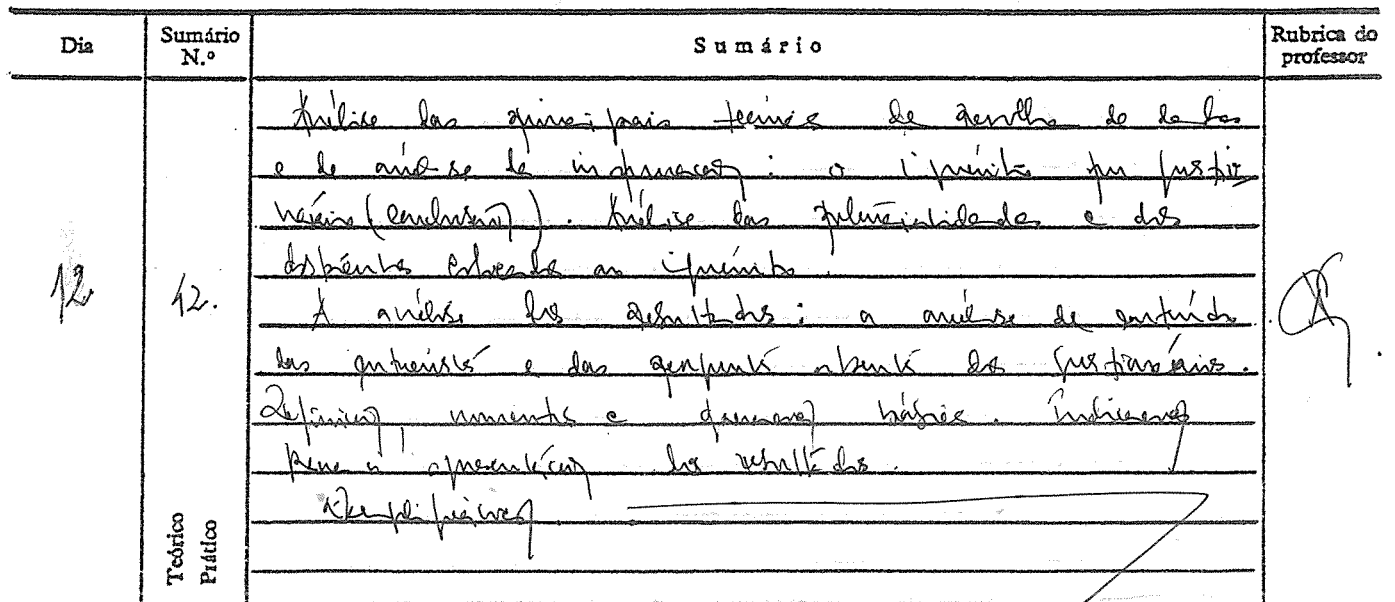 Dia Sumário N.º Sumário Rubrica do professor
Análise das principais técnicas de recolha de dados
e de análise da informação: o inquérito por questio
nário (conclusão). Análise das potencialidades e dos
ao inquérito.
12 42. A análise dos resultados: a análise de conteúdo
das entrevistas e das respostas abertas dos questionários.
Definição, momentos e operações básicas. Indicações
para a apresentação dos resultados.
Exemplificações
Teórico
Prático